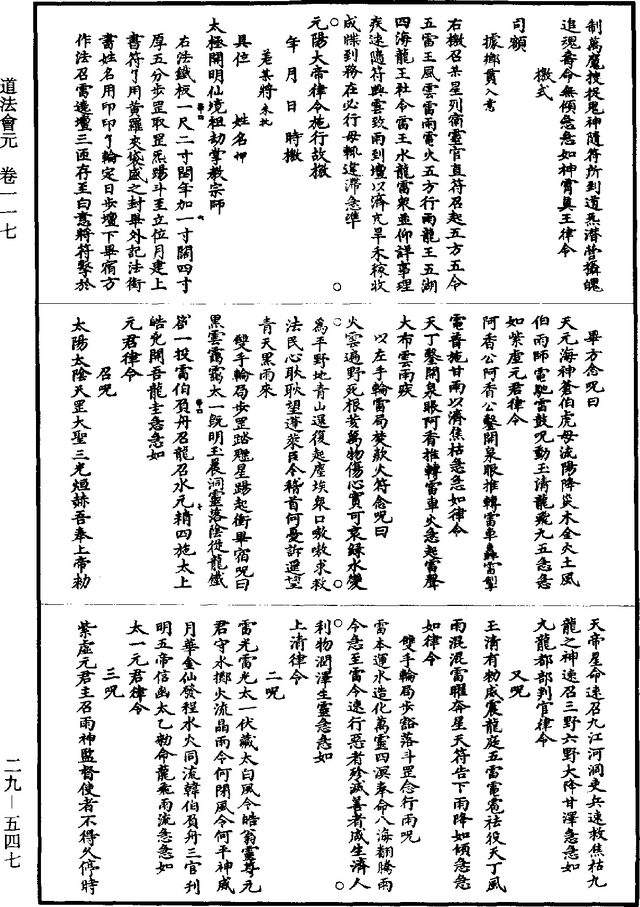 制萬魔搜捉鬼神隨符所到道炁潛營攝魄
追魂奪命無傾急急如神霄真王律令
檄式
司額
據鄉貫入意
右檄召某星列衛靈官直符召起五方五令
五雷王風雲雷雨電火五方行雨龍王五湖
四海龍王社令雷王水龍雷衆並仰詳事理
疾速隨符興雲致雨到壇以濟亢旱禾稼收
成牒到務在必行毋輒違滯急準
元陽大帝律令施行故檄
年 月 日 時檄
差某將 未批
具位 姓名 押
太極開明仙境祖劫掌教宗師
右法鐵板一尺二寸閏年加一寸闊四寸
厚五分步罡取罡炁踢斗至立位月建上
書符了用黃羅夾袋盛之封與外記法銜
書姓名用印印了輪定日步壇下畢宿方
作法召雷遶壇三匝存至白意將符擊於
畢方念呪曰
天元海神蒼伯虎母流陽降炎木金火土風
伯雨師雷馳雷鼓呪動玉清龍飛九五急急
如紫虛元君律令
阿香公阿香公鑿開泉眼推轉雷車轟雷掣
電普施甘雨以濟焦枯急急如律令
天丁鑿開泉眼阿香推轉雷車火急起雷聲
大布雲雨疾
以左手輪雷局焚歘火符念呪曰
火雲遍野死根荄萬物傷心實可哀綠水變
爲平野地青山還復起塵埃衆口嗷嗷求救
法民心耿耿望蓬萊臣今稽首何憂訴還望
青天黑雨來
雙手輪局步罡踏魁星踢起衝畢宿呪曰
黑雲靄靄太一旣明玉晨洞靈落陰從龍鐵
劄一投雷伯質舟召龍召水元精四施太上
皓兇開吾龍圭急急如
元君律令
召呪
太陽太陰天罡大聖三光烜赫吾奉上帝勑
天帝星命速召九江河洞吏兵速救焦枯九
龍之神速召三野六野大降甘澤急急如
九龍都部判官律令
又呪
玉清有勑威震龍庭五雷電雹祛役天丁風
雨混混雷曜奔星天符告下雨降如傾急急
如律令
雙手輪局步豁落斗罡念行雨呪
雷本運水造化萬靈四溟奉命八海翻騰雨
令急至雷令速行惡者殄滅善者成生濟人
利物潤澤生靈急急如
上清律令
二呪
雷光雷光太一伏藏太白風令皓翁靈尊元
君守水擲火流晶雨令何閉風令何平神威
月華金仙發程水火同流韓伯質舟三官刋
明五帝信幽太乙勑命龍飛雨流急急如
太一元君律令
三呪
紫虛元君主召雨神監督使者不得久停時
道法會元 卷一一七
二九－五四七